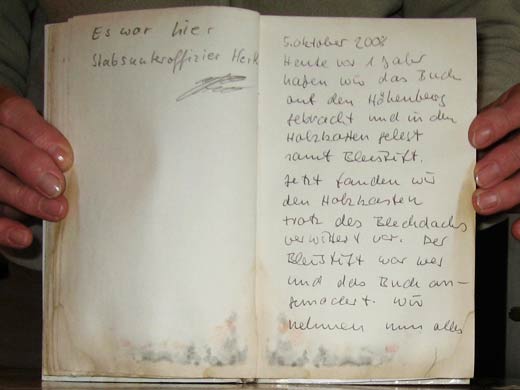 Es war hier
Stabsunteroffizier Herk
5. Oktober 2008
Heute vor 1 Jahr
haben wir das Buch
auf den Höhenberg
gebracht und in den
Holzkasten gelegt
samt Bleistift.
Jetzt fanden wir
den Holzkasten
trotz des Blechdachs
verwittert vor. Der
Bleistift war weg
und das Buch an-
gemodert. Wir
nehmen nun alles